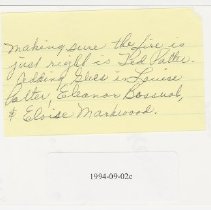 Making sure the fire is
just right is Ted Potter.
Adding Gees is Louise
Potter, Eleanor Bossual,
& Eloise Markwood.
1994-09-02c